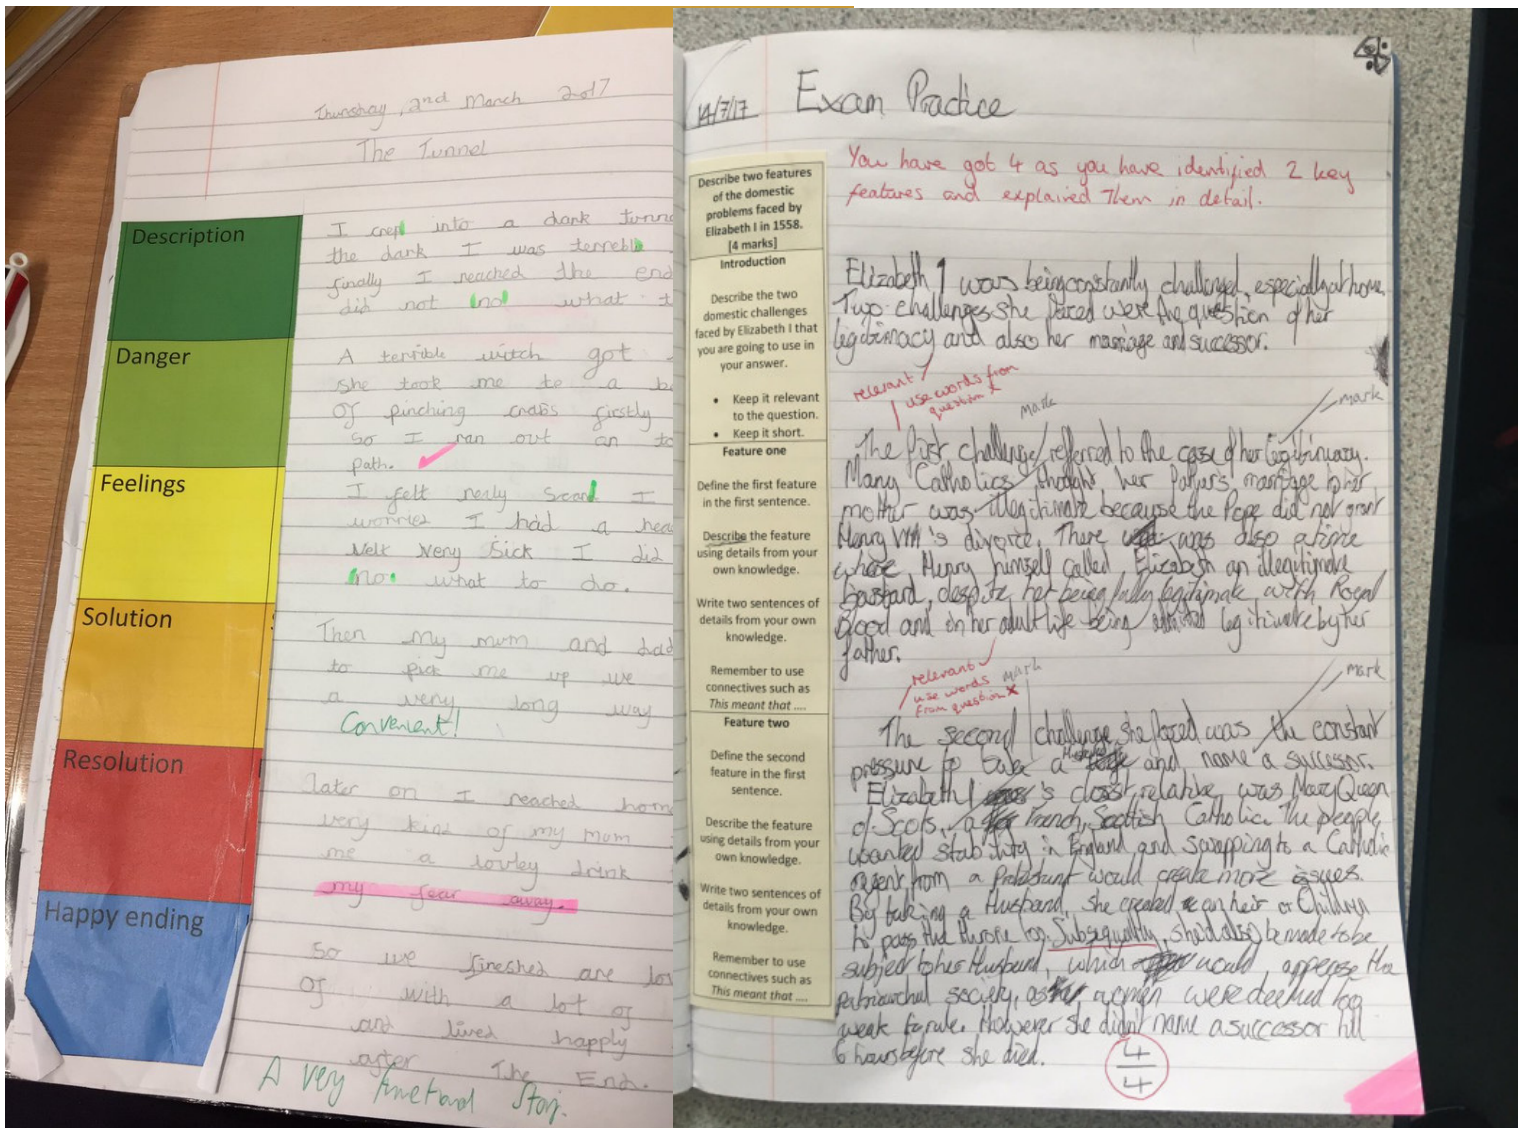 Thursday, 2nd March 2017
The Tunnel
Description
I crept into a dark
the dark I was
finally I reached the end
did not no what
Danger
A terrible witch got
she took me to a
of pinching crabs firstly
so I ran out an to
path.
Feelings
I felt I
worried I had a
very sick I did
no what to do.
Solution
Then my mum and dad
to pick me up we
a very long way
Convenient!
Resolution
later on I reached
very kind of my mum
me a lovley drink
my fear away.
Happy ending
So we fineshed are
of with a lot of
and lived happy
after The End.
A very story.
14/7/17
Exam Practice
You have got 4 as you have identified 2 key
features and explained them in detail.
Describe two features
of the domestic
problems faced by
Elizabeth I in 1558.
[4 marks]
Introduction
Describe the two
domestic challenges
faced by Elizabeth I that
you are going to use in
your answer.
• Keep it relevant
to the question.
• Keep it short.
Feature one
Define the first feature
in the first sentence.
Describe the feature
using details from your
own knowledge.
Write two sentences of
details from your own
knowledge.
Remember to use
connectives such as
This meant that ....
Feature two
Define the second
feature in the first
sentence.
Describe the feature
using details from your
own knowledge.
Write two sentences of
details from your own
knowledge.
Remember to use
connectives such as
This meant that ....
Elizabeth I was being constantly challenged, especially at home.
Two challenges she faced were the question of her
legitimacy and also her marriage and successor.
relevant
use words from
question
mark
mark
The first challenge referred to the case of her
Many Catholics thought her fathers' marriage to her
mother was illegitimate because the Pope did not grant
Henry VIII's divorce. There was also a time
where Henry himself called Elizabeth an illegitimate
bastard, despite her being fully legitimate with Royal
Blood and in her adult life being legitimate by her
father.
relevant
use words
from question
mark
mark
The second challenge she faced was the constant
pressure to take a and name a successor.
Elizabeth I 's closest relative was Mary Queen
of Scots, a French, Scottish Catholic. The people
wanted stability in England and swapping to a Catholic
regent from a Protestant would create more issues.
By taking a Husband, she created an heir or Children
to pass the throne too. she'd also be made to be
subject to her Husband, which would appease the
patriarchal society, as women were deemed too
weak to rule. However she didn't name a successor till
6 hours before she died.
4
4